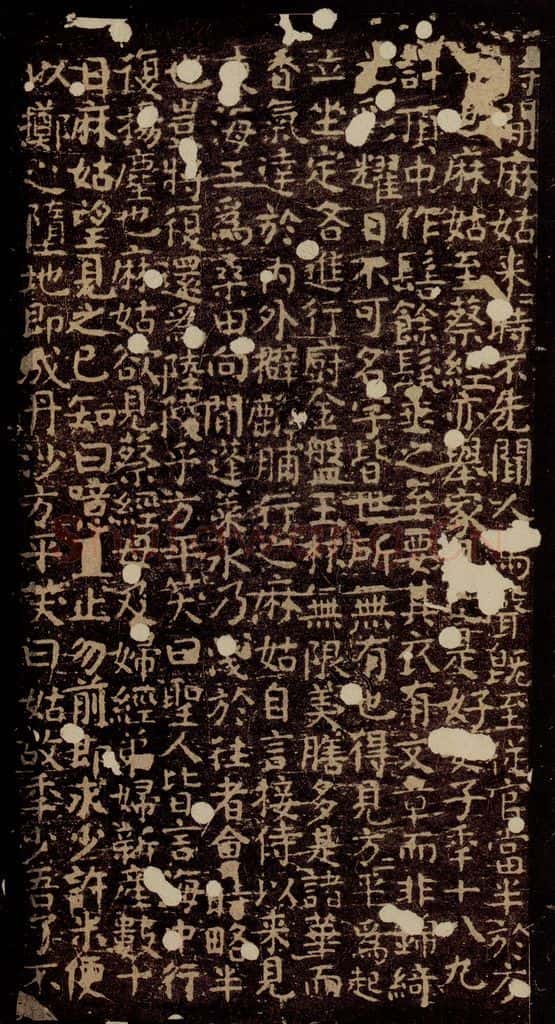 時間麻姑來〻時不先聞人馬聲既至從官當半於方
也麻姑至蔡經亦舉家是好女子年十八九
許頂中作髻餘髮垂之至要其衣有文章而非錦綺
光彩耀日不可名字皆世所無有也得見方〻平〻為起
立坐定各進行廚金盤玉杯無限美膳多是諸華而
香氣達於內外擗麟脯行之麻姑自言接待以來見
東海三為桑田向間蓬萊水乃淺於往者會時略半
也豈將復還為陸陵乎方平笑曰聖人皆言海中行
復揚塵也麻姑欲見蔡經母及婦經弟婦新產數十
日麻姑望見之已知曰噫且止勿前即求少許米便
以擲之墮地即成丹沙方平笑曰姑故年少吾了不